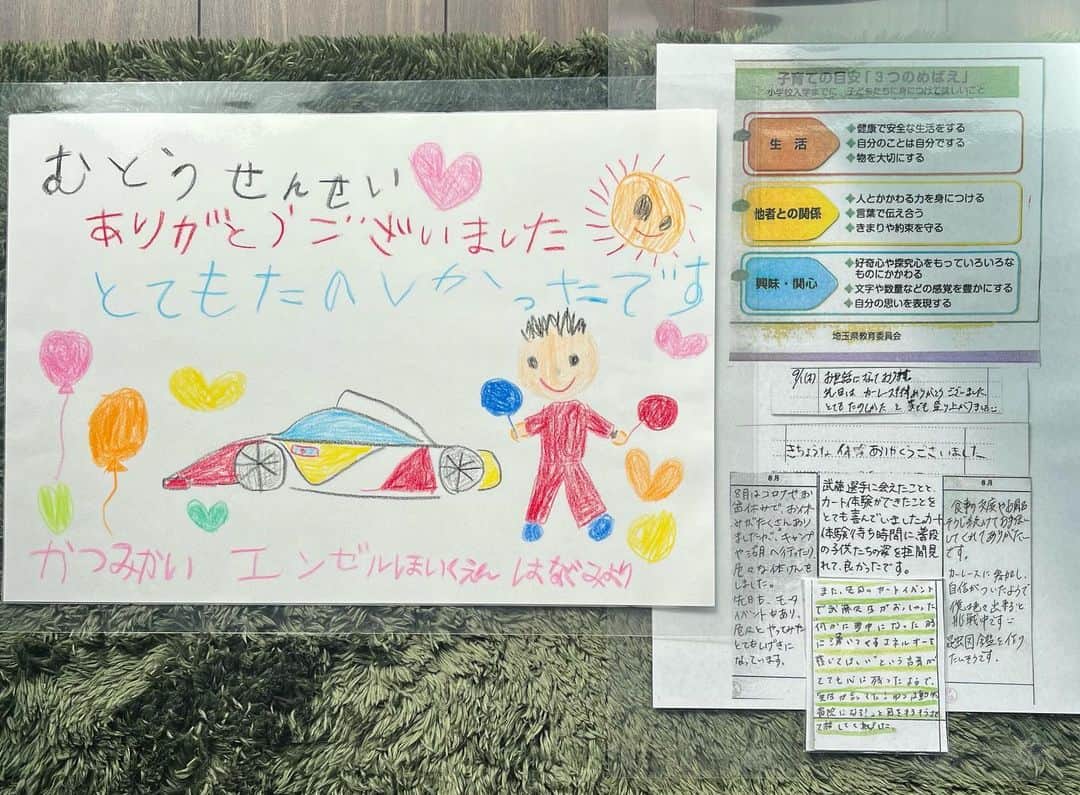 むとうせんせい
ありがとうございました
とてもたのしかったです
かつみかい エンゼルほいくえん はなぐみより
子育ての目安「3つのめばえ」
小学校入学までに、子どもたちに身につけてほしいこと
生活
◆健康で安全な生活をする
◆自分のことは自分でする
◆物を大切にする
他者との関係
◆人とかかわる力を身につける
◆言葉で伝え合う
◆きまりや約束を守る
興味・関心
◆好奇心や探究心をもっていろいろな
ものにかかわる
◆文字や数量などの感覚を豊かにする
◆自分の思いを表現する
埼玉県教育委員会
お世話になっております
先日は カーレース体験ありがとうございました
きちょうな 体験 ありがとうございました
8月
8月はコロナやお
盆休みで、お休み
しました。
先日も、モータ
イベントもあり、
なっています。
武藤選手に会えたことと、
カート体験ができたことを
とても喜んでいました。カート
体験待ち時間に、普段
の子供たちの姿を垣間見
れて、良かったです。
8月
してくれてありがたい
です。
カーレースに参加し、
自信がついたようで
僕は色々出来ると
挑戦中です
昆虫図鑑を作り
たいそうです。
また、先日のカートイベント
で武藤先生がおっしゃった
何かに夢中になった時
に湧いてくるエネルギーを
という言葉が
とても心に残ったようで、